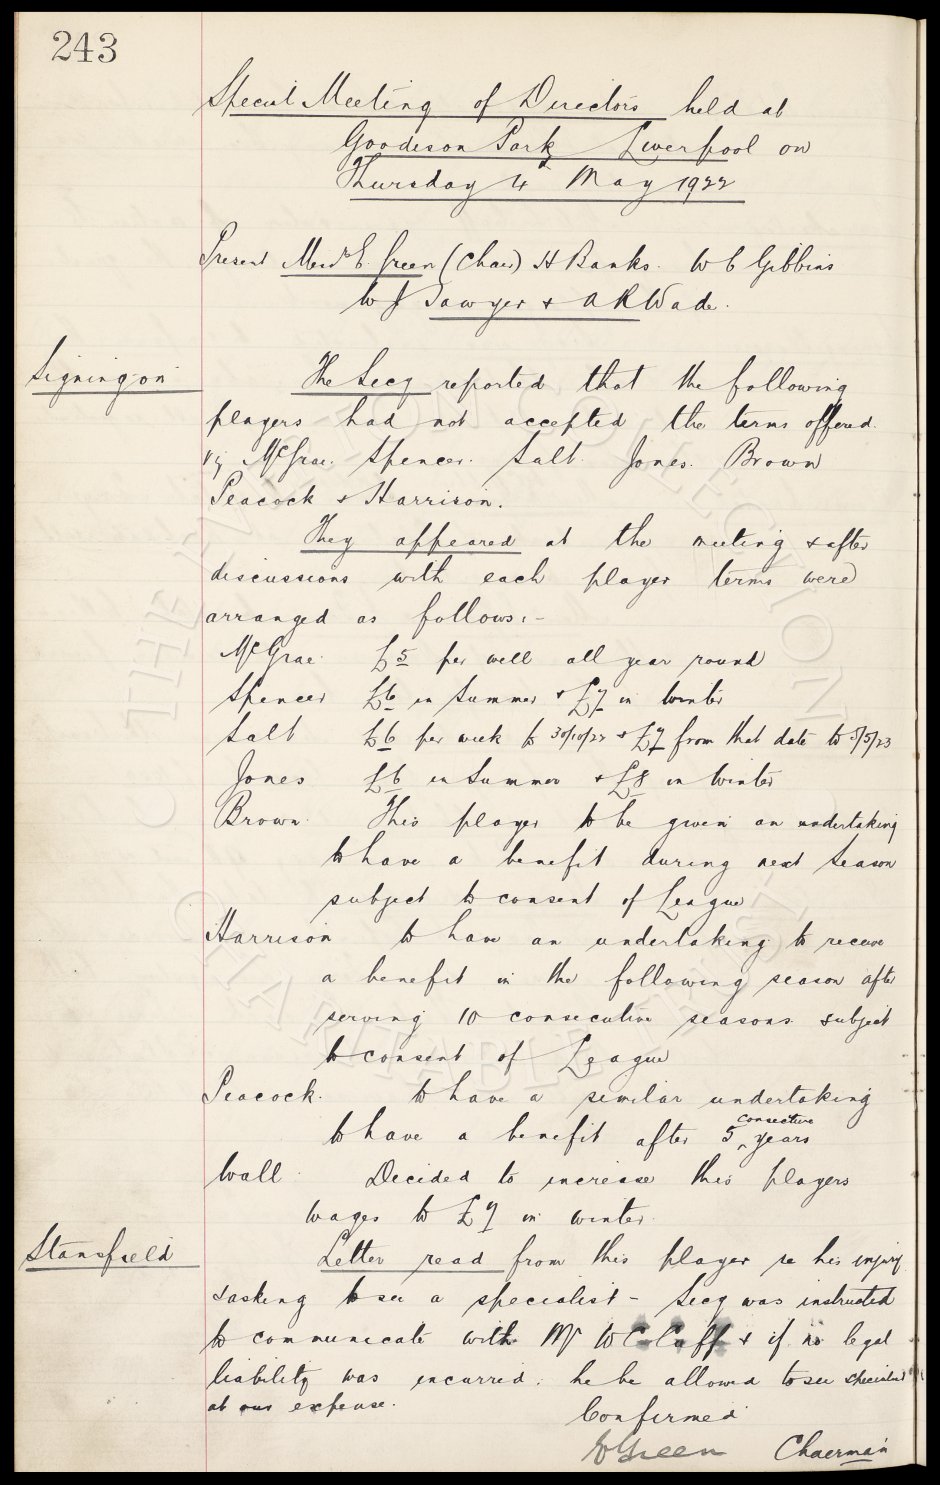 243
Special Meeting of Directors held at
Goodison Park Liverpool on
Thursday 4th May 1922
Present Messrs E. Green (Chair) H Banks. W C Gibbins
W J Sawyer & A R Wade.
Signing on
The Secy reported that the following
players had not accepted the terms offered.
viz McGrae. Spencer. Salt. Jones. Brown
Peacock & Harrison.
They appeared at the meeting & after
discussions with each player terms were
arranged as follows:-
McGrae. £5 per well all year round
Spencer £6 in Summer & £7 in Winter
Salt £6 per week to 30/10/22 & £7 from that date to 5/5/23
Jones £6 in Summer & £8 in Winter
Brown. This player to be given an undertaking
to have a benefit during next Season
subject to consent of League
Harrison to have an undertaking to receive
a benefit in the following season after
serving 10 consecutive seasons subject
to consent of League
Peacock. to have a similar undertaking
consective
to have a benefit after 5 ^ years
Wall. Decided to increase this players
wages to £7 in winter.
Stansfield
Letter read from this player re his injury
& asking to see a specialist - Secy was instructed
to communicate with Mr W C Cuff & if no legal
liability was incurred. he be allowed to see specialist
at our expense.
Confirmed
E Green Chairman
THE EVERTON COLLECTION
CHARITABLE TRUST